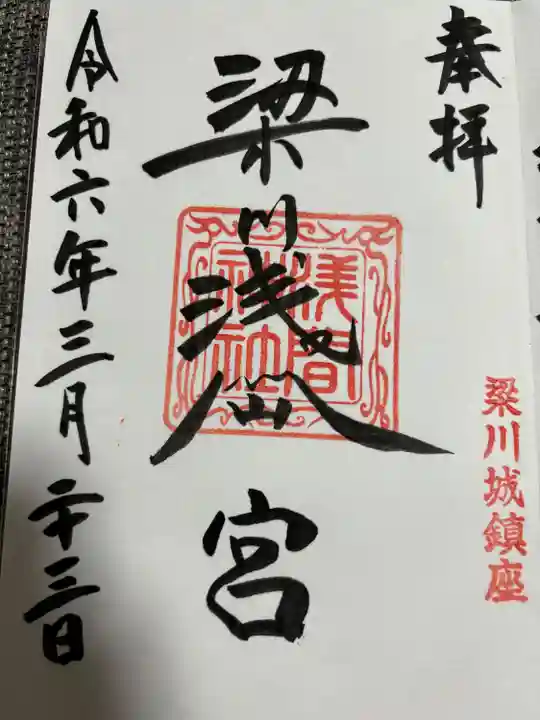 奉拝
梁川城鎮座
梁川浅間宮
浅間
神社
令和六年三月二十三日